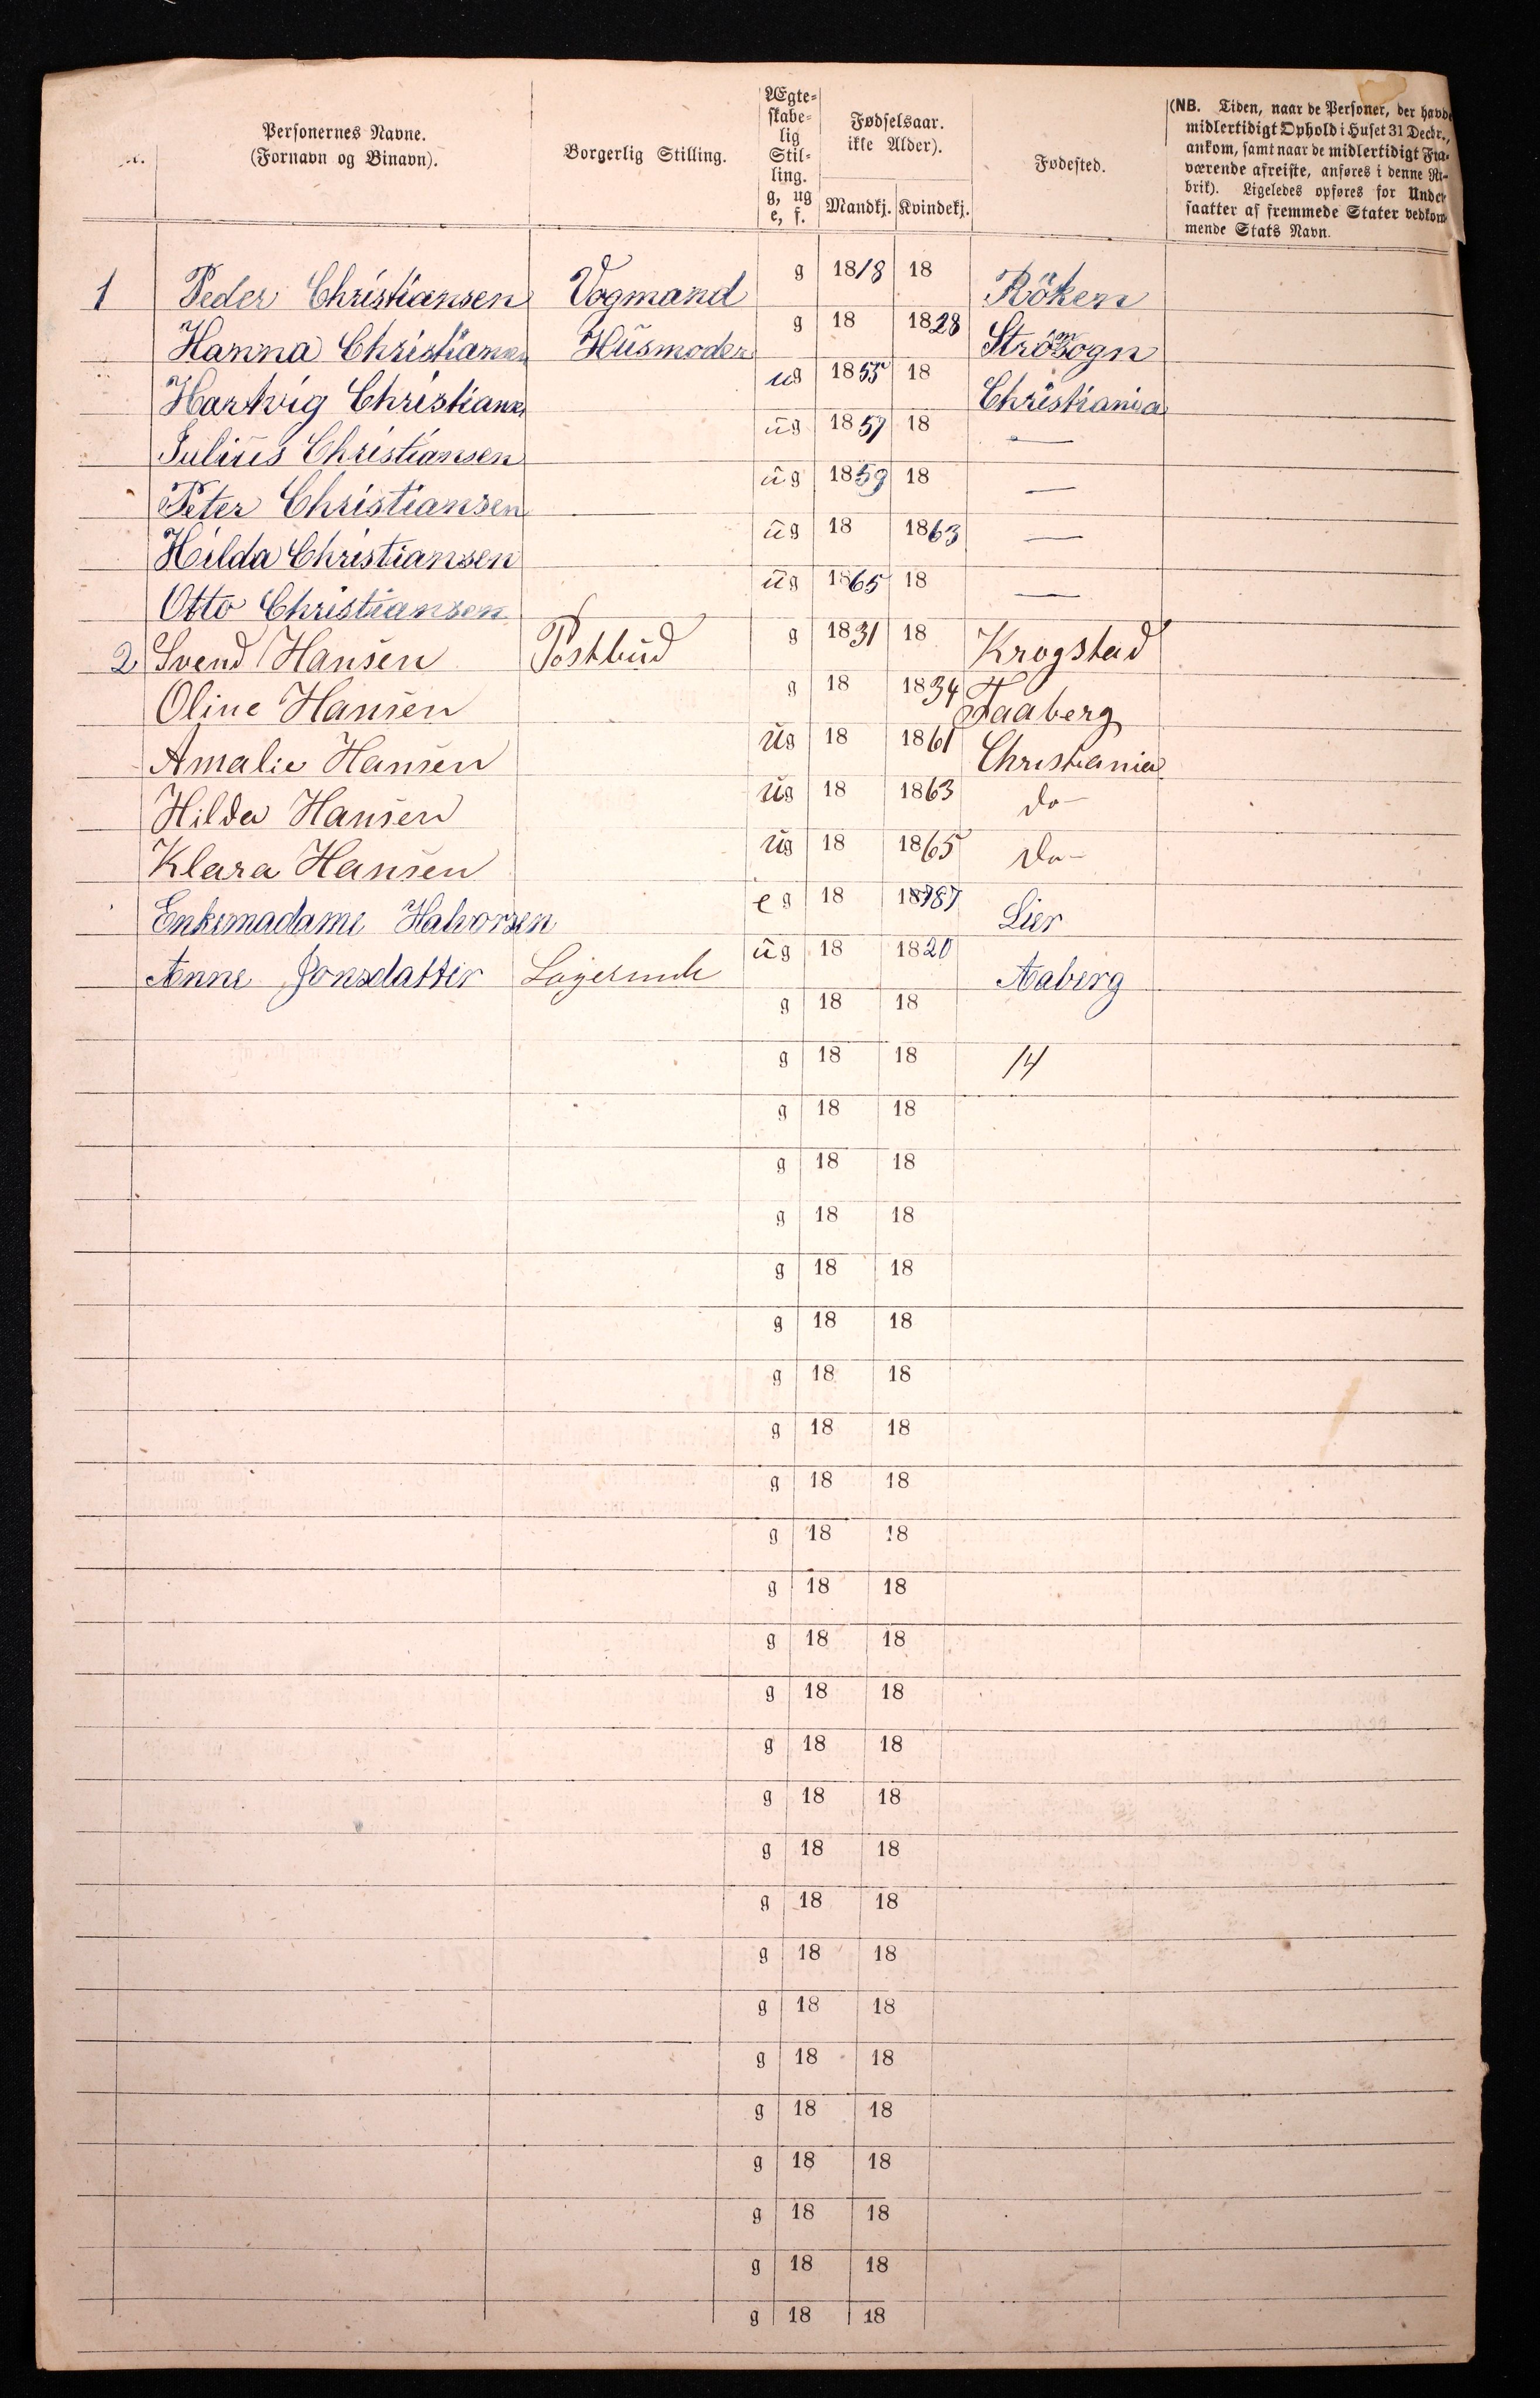 Nr.
Personernes Navne.
(Fornavn og Binavn).
Borgerlig Stilling.
Ægte-
skabe-
lig
Stil-
ling.
g, ug
e, f.
Fødselsaar.
ikke Alder).
Mandkj. Kvindekj.
Fødested.
(NB. Tiden, naar de Personer, der havde
midlertidigt Ophold i Huset 31 Decbr.,
ankom, samt naar de midlertidigt Fra-
værende afreiste, anføres i denne Ru-
brik). Ligeledes opføres for Under
saatter af fremmede Stater vedkom
mende Stats Navn.
1 Peder Christiansen Vogmand g 1818 18 Röken
Hanna Christiansen Husmoder g 18 1828 Strömsogn
Hartvig Christians ug 1855 18 Christiania
Julius Christiansen ug 1857 18 —
Peter Christiansen ug 1859 18 —
Hilda Christiansen ug 18 1863 —
Otto Christiansen ug 1865 18 —
2 Svend Hansen Postbud g 1831 18 Krogstad
Oline Hansen g 18 1834 Faaberg
Amalie Hansen ug 18 1861 Christiania
Hilda Hansen ug 18 1863 do-
Klara Hansen ug 18 1865 do-
Enkemadame Halvorsen e g 18 Lier
Anne Jonsdatter ug 18 1820 Aaberg
g 18 18
g 18 18 14
g 18 18
g 18 18
g 18 18
g 18 18
g 18 18
g 18 18
g 18 18
g 18 18
g 18 18
g 18 18
g 18 18
g 18 18
g 18 18
g 18 18
g 18 18
g 18 18
g 18 18
g 18 18
g 18 18
g 18 18
g 18 18
g 18 18
g 18 18
g 18 18